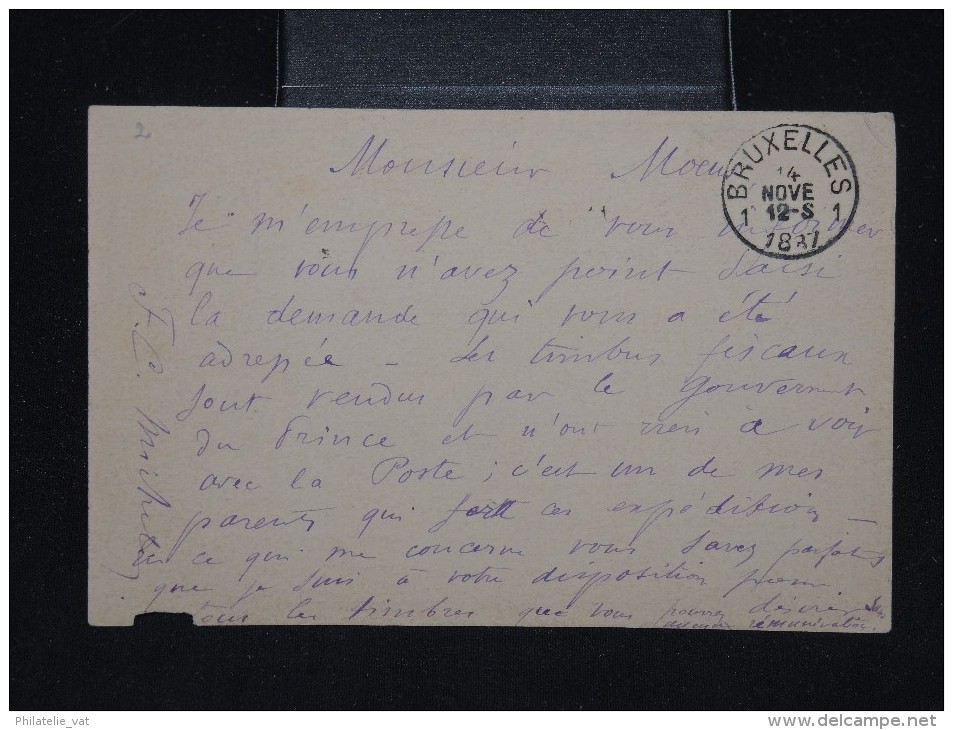 2
Monsieur Moens
BRUXELLES
14
NOVE
1 12-S 1
1887
Je m'empresse de vous informer
que vous n'avez point saisi
la demande qui vous a été
adressée - Les timbres fiscaux
sont vendus par le Gouvernement
du Prince et n'ont rien à voir
avec la Poste ; c'est un de mes
parents qui fait ces expéditions -
en ce qui me concerne vous savez
que je suis à votre disposition pour
tous les timbres que vous pourrez désirer sans
aucune rémunération.
Philatelie_vat
www.delcampe.net